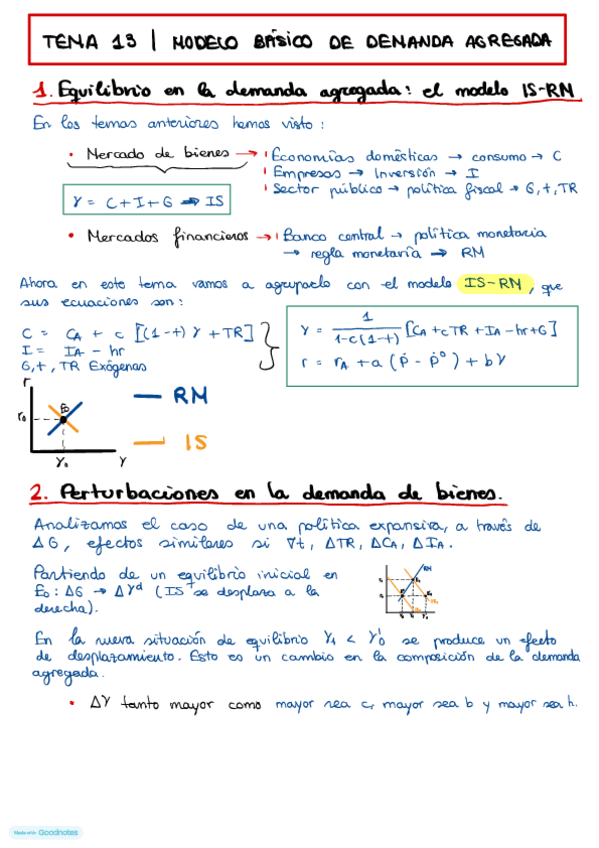 TEMA 13 | MODELO BÁSICO DE DEMANDA AGREGADA
1. Equilibrio en la demanda agregada: el modelo IS-RM
En los temas anteriores hemos visto:
• Mercado de bienes → Economías domésticas → consumo → C
Empresas → Inversión → I
Sector público → política fiscal → G, t, TR
Y = C + I + G → IS
• Mercados financieros → Banco central → política monetaria
→ regla monetaria → RM
Ahora en este tema vamos a agruparlo con el modelo IS-RM, que
sus ecuaciones son:
C = CA + c [(1-t) Y + TR]
I = IA - hr
G, t, TR Exógenas
Y = 1 / 1-c(1-t) [CA + cTR + IA - hr + G]
r = rA + a (ṗ - ṗ⁰) + bY
r
r₀
E₀
Y₀
Y
RM
IS
2. Perturbaciones en la demanda de bienes.
Analizamos el caso de una política expansiva, a través de
ΔG, efectos similares si ∇t, ΔTR, ΔCA, ΔIA.
Partiendo de un equilibrio inicial en
E₀: ΔG → ΔYᵈ (IS se desplaza a la
derecha).
RM
En la nueva situación de equilibrio Y₁ < Y₀' se produce un efecto
de desplazamiento. Esto es un cambio en la composición de la demanda
agregada.
• ΔY tanto mayor como mayor sea c, mayor sea b y mayor sea h.
Made with Goodnotes